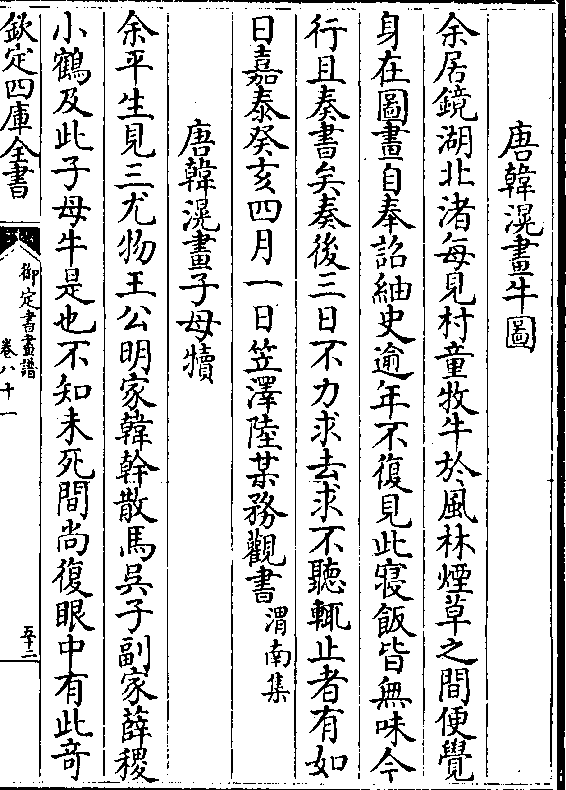 唐韓滉畫牛圖
余居鏡湖北渚每見村童牧牛於風林煙草之間便覺
身在圖畫自奉詔紬史逾年不復見此寢飯皆無味今
行且奏書矣奏後三日不力求去求不聽輒止者有如
日嘉泰癸亥四月一日笠澤陸某務觀書渭南集
唐韓滉畫子母犢
余平生見三尤物王公明家韓幹散馬吳子副家薛稷
小鶴及此子母牛是也不知未死間尚復眼中有此竒
欽定四庫全書
御定書畫譜
卷八十一
五十二